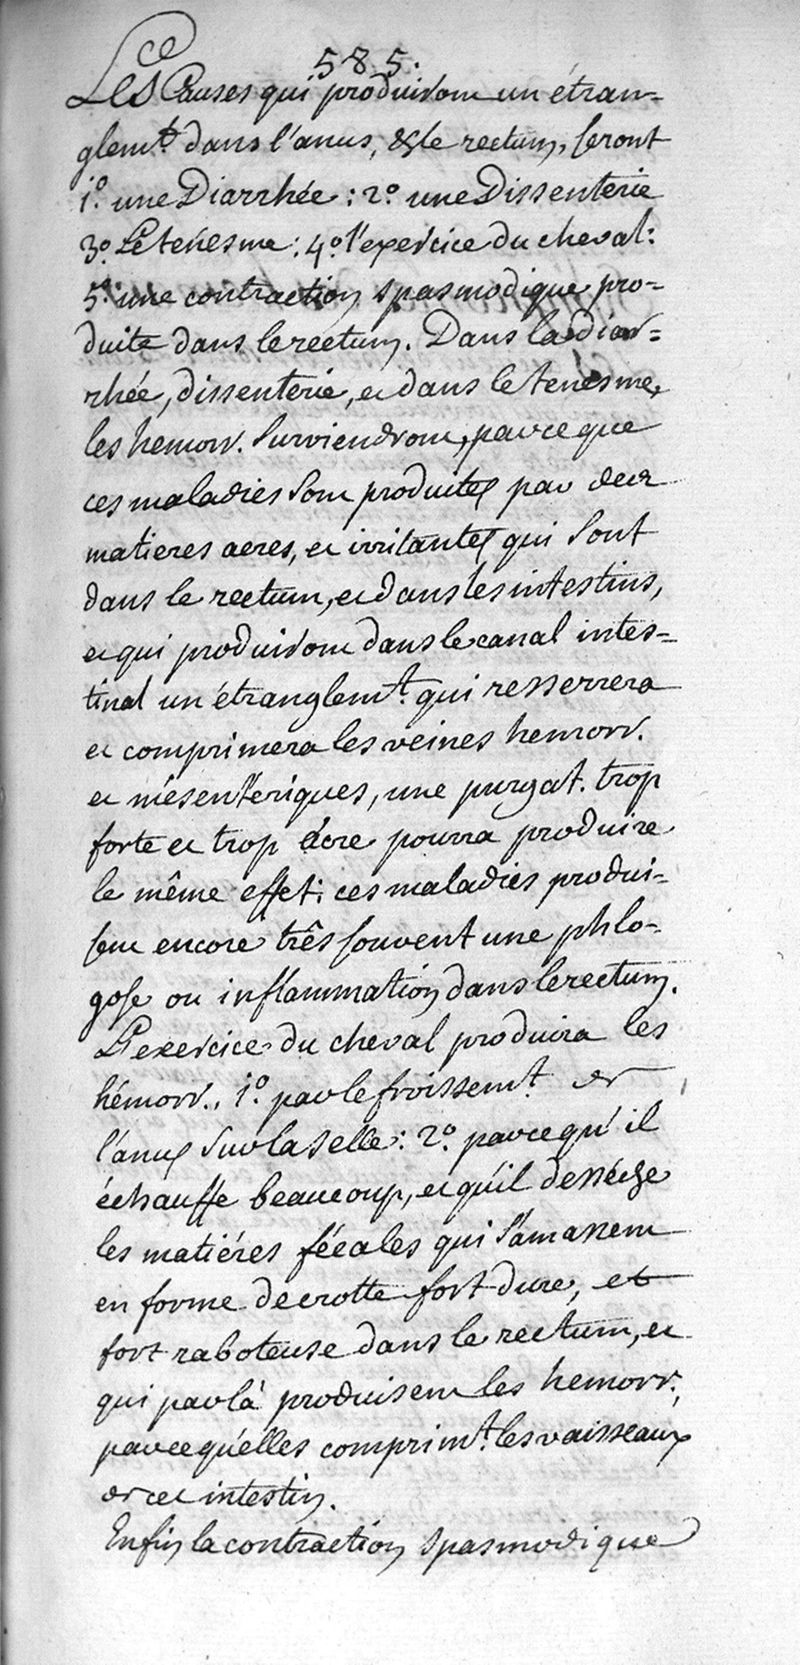 585.
Les Causes qui produiront un étran-
glemt. dans l'anus, & le rectum, seront
1º. une Diarrhée : 2º. une Dissenterie
3º. Le tenesme : 4º. l'exercice du cheval :
5º. une contraction spasmodique pro-
duite dans le rectum. Dans la diar=
rhée, dissenterie, et dans le tenesme,
les hemorr. surviendront, parce que
ces maladies sont produites par des
matieres acres, et irritantes qui sont
dans le rectum, et dans les intestins,
et qui produiront dans le canal intes=
tinal un étranglemt. qui resserrera
et comprimera les veines hemorr.
et mésentériques, une purgat. trop
forte et trop âcre pourra produire
le même effet; ces maladies produi-
sent encore très souvent une phlo-
gose ou inflammation dans le rectum.
L'exercice du cheval produira les
hémorr., 1º. par le froissemt. de
l'anus sur la selle : 2º. parce qu'il
échauffe beaucoup, et qu'il desséche
les matiéres fécales qui s'amassent
en forme de crotte fort dure, et
fort raboteuse dans le rectum, et
qui par là produisent les hemorr.,
parce qu'elles comprimt. les vaisseaux
de cet intestin.
Enfin la contraction spasmodique